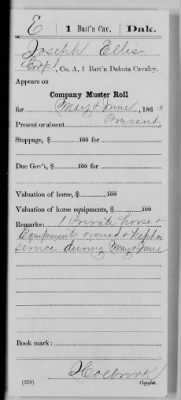 E 1 Batt'n Cav. Dak.
Joseph Ellis
Corpl, Co. A, 1 Batt'n Dakota Cavalry.
Appears on
Company Muster Roll
for May & June, 186
Present or absent Present
Stoppage, $ 100 for
Due Gov't, $ 100 for
Valuation of horse, $ 100
Valuation of horse equipments, $ 100
Remarks: 1 Private horse &
Equipments owned & kept in
service during May & June
Book mark:
Holbrook
(858) Copyist.